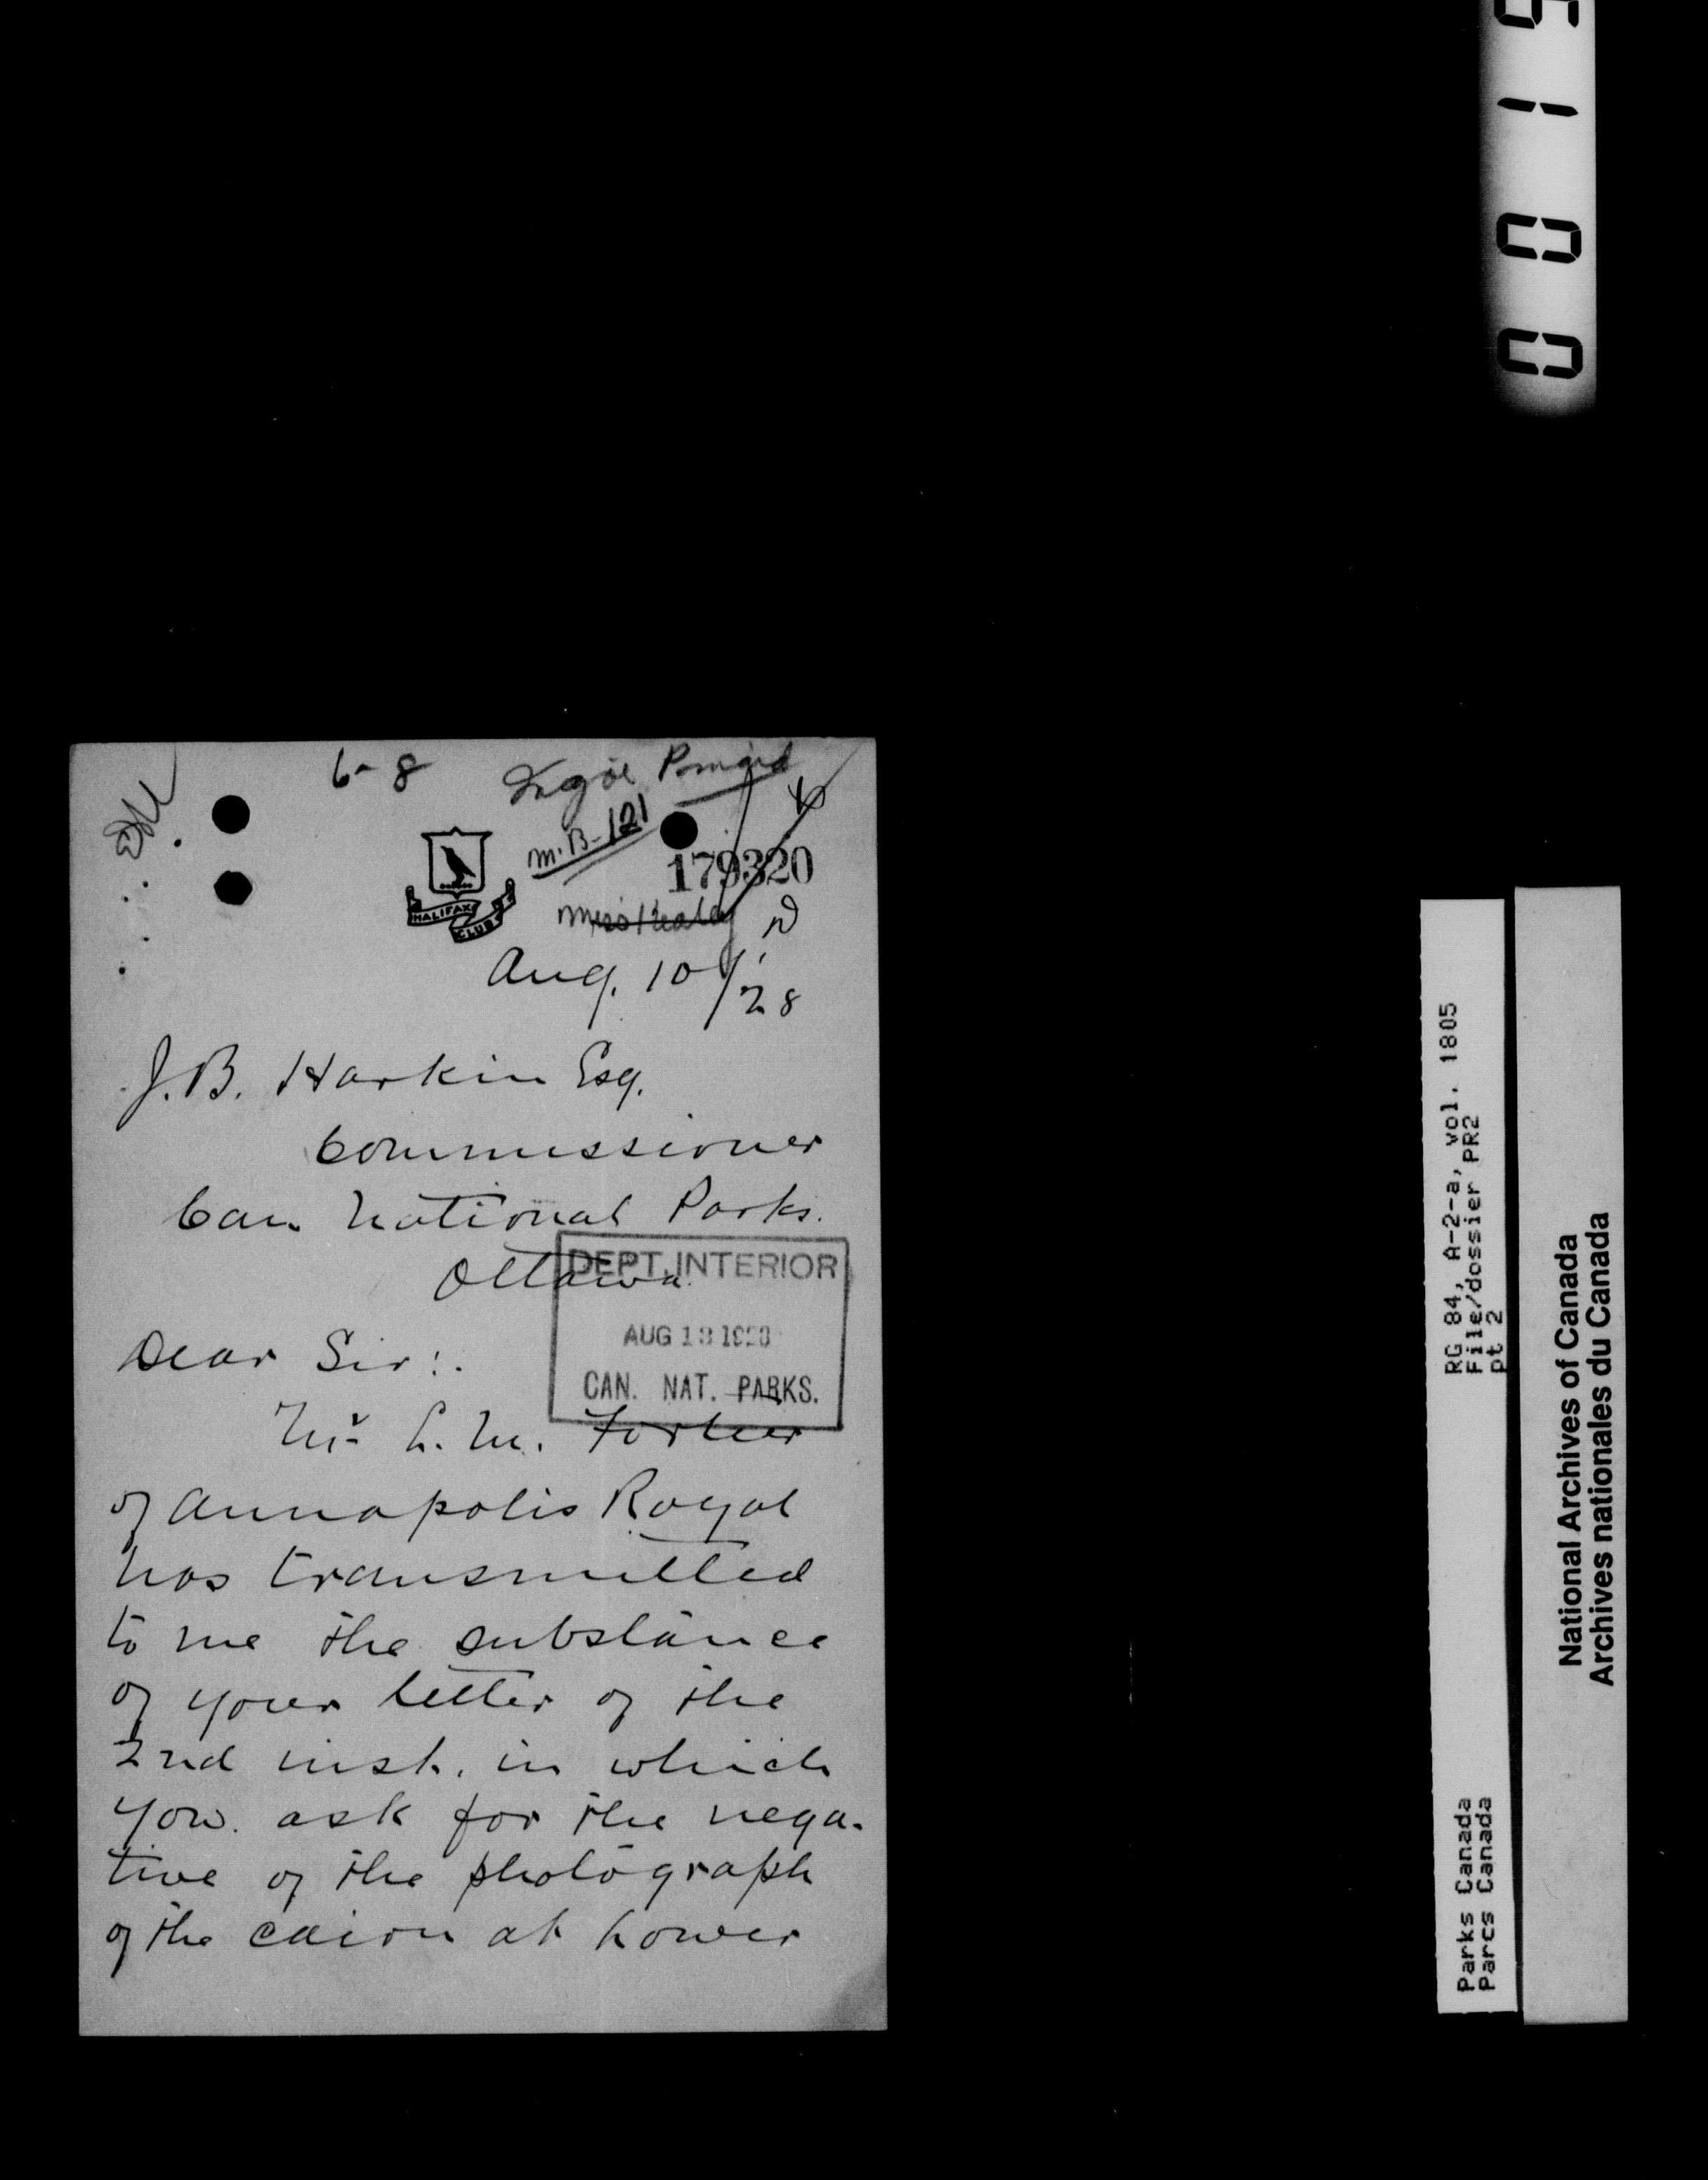 6-8
M.B-121
179320
HALIFAX
CLUB
Aug. 10/28
J.B. Harkin Esq.
Commissioner
Can. National Parks.
Ottawa.
DEPT. INTERIOR
AUG 13 1928
CAN. NAT. PARKS.
Dear Sir:.
Mr L. M. Fortier
of Annapolis Royal
has transmitted
to me the substance
of your letter of the
2nd inst. in which
you ask for the nega-
tive of the photograph
of the cairn at Lower
0015
RG 84, A-2-a, vol. 1805
File/dossier PR2
pt 2
Parks Canada
Parcs Canada
National Archives of Canada
Archives nationales du Canada